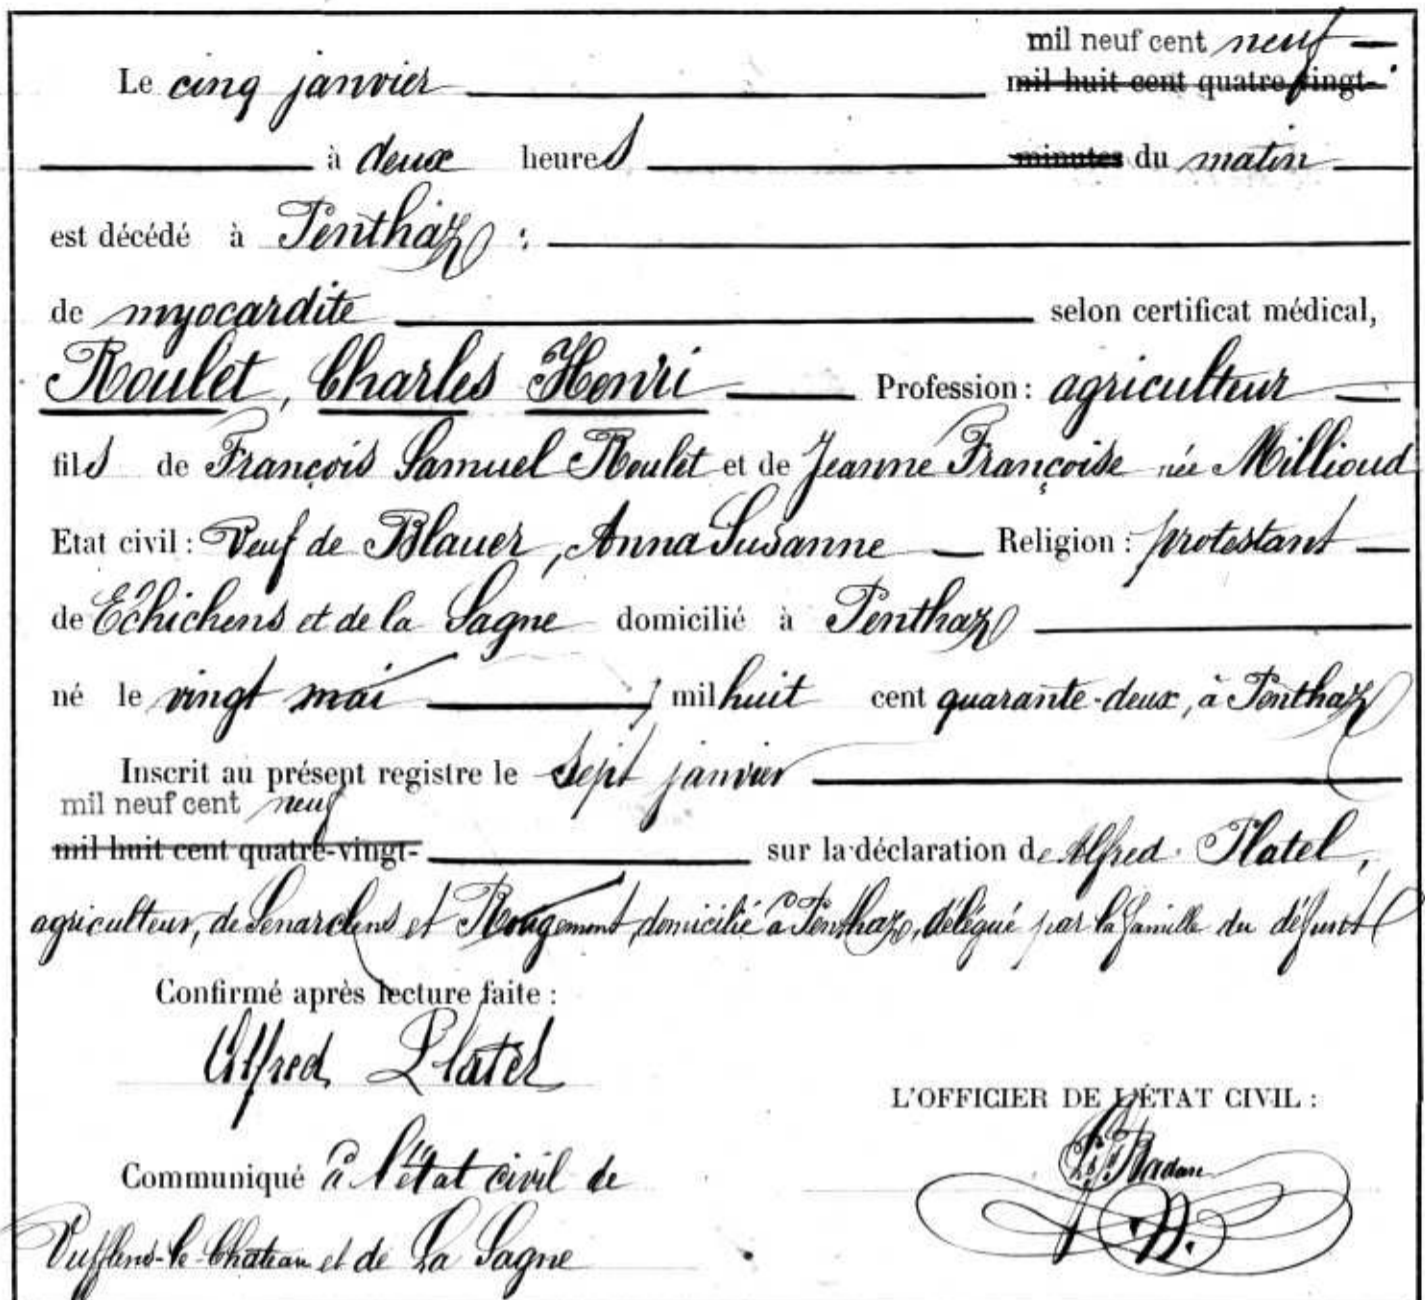 mil neuf cent neuf
Le cinq janvier mil huit cent quatre-vingt-
à deux heures minutes du matin
est décédé à Penthaz :
de myocardite selon certificat médical,
Roulet, Charles Henri Profession : agriculteur
fils de François Samuel Roulet et de Jeanne Françoise née Millioud
Etat civil : Veuf de Blauer, Anna Susanne Religion : protestant
de Echichens et de la Sagne domicilié à Penthaz
né le vingt mai, mil huit cent quarante-deux, à Penthaz
Inscrit au présent registre le sept janvier
mil neuf cent neuf
mil huit cent quatre-vingt- sur la déclaration de Alfred Platel,
agriculteur, de Senarclens et Rougemont, domicilié à Penthaz, délégué par la famille du défunt
Confirmé après lecture faite :
Alfred Platel
L'OFFICIER DE L'ÉTAT CIVIL :
Communiqué à l'état civil de
Vufflens-le-Château et de La Sagne